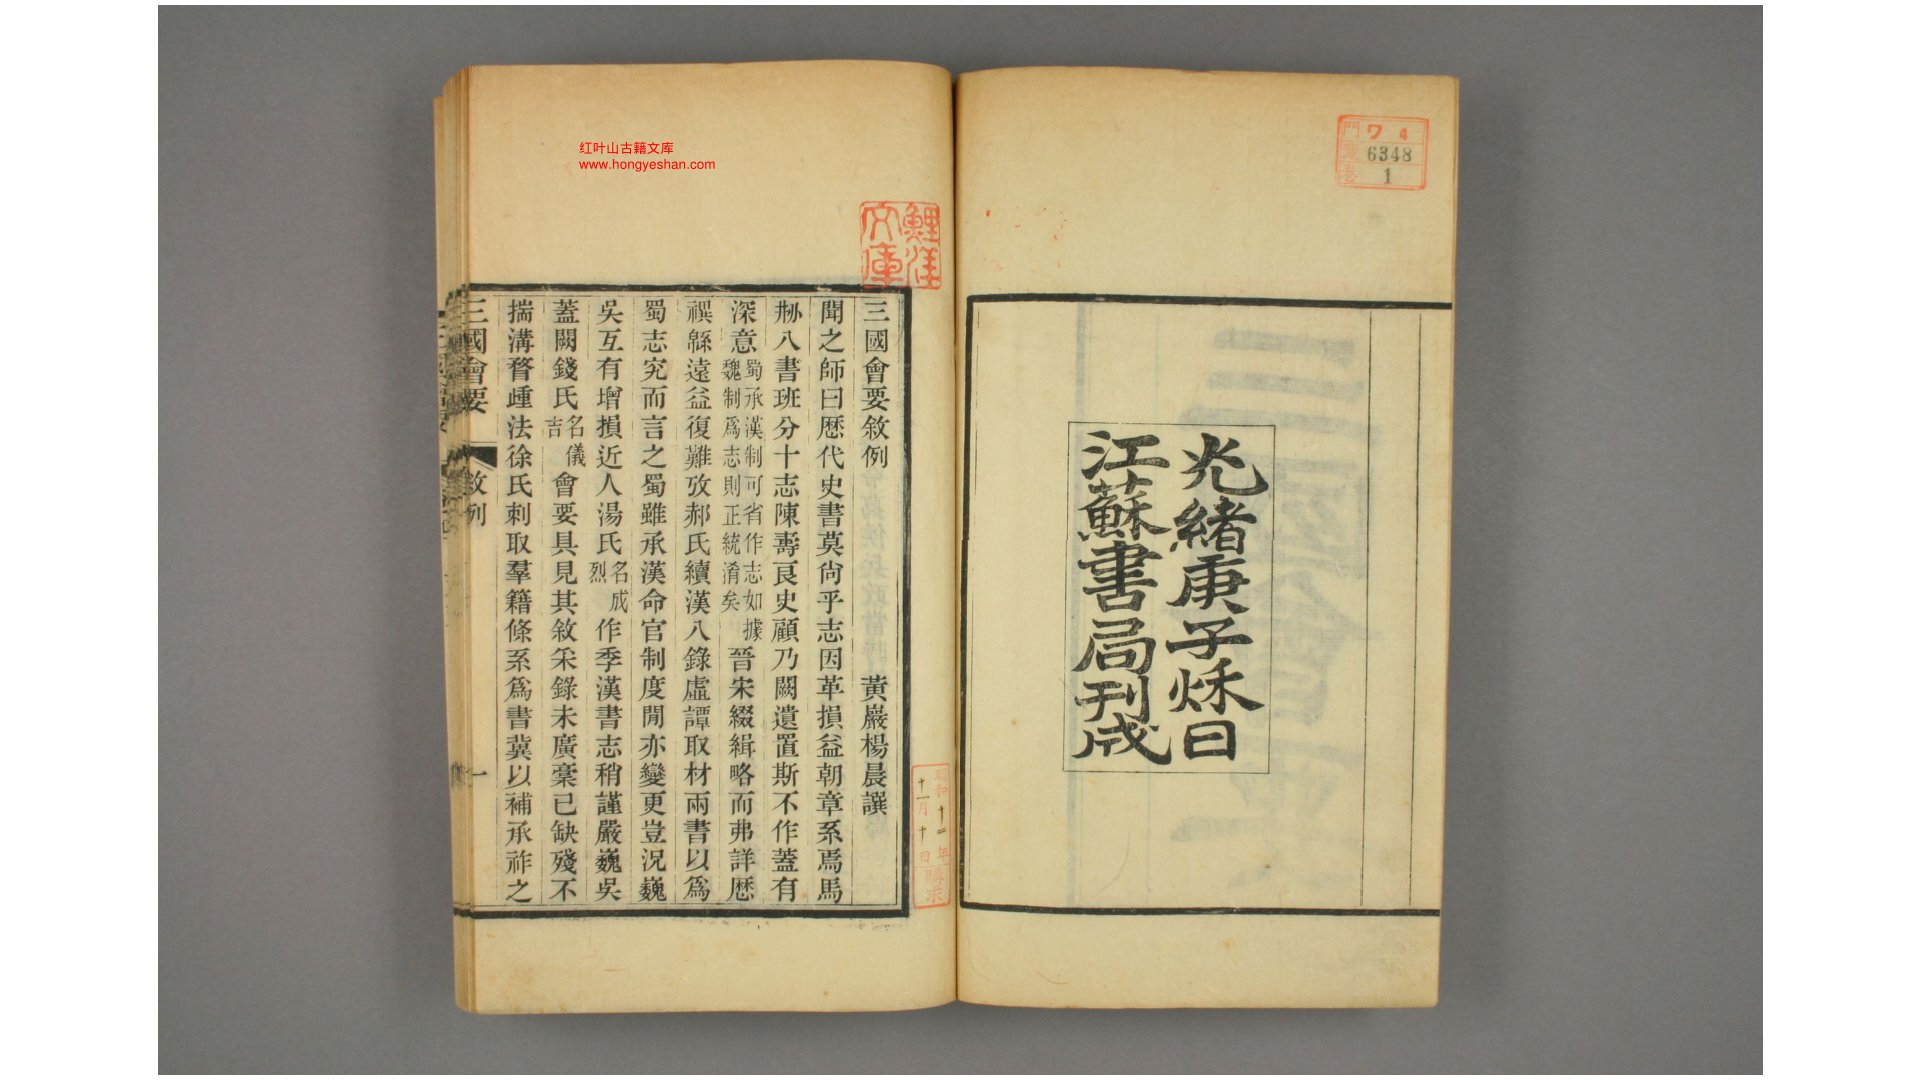 红叶山古籍文库
www.hongyeshan.com
門 ワ 4
號 6348
卷 1
光緒庚子炑日
江蘇書局刊成
鯉洋
文庫
昭和十二年
十一月十日
購求
三國會要敘例 黃巖楊晨譔
聞之師曰歷代史書莫尙乎志因革損益朝章系焉馬
刱八書班分十志陳壽良史顧乃闕遺置斯不作蓋有
深意蜀承漢制可省作志如據魏制爲志則正統淆矣晉宋綴緝略而弗詳歷
禩緜遠益復難攷郝氏續漢八錄虛譚取材兩書以爲
蜀志究而言之蜀雖承漢命官制度閒亦變更豈況巍
吳互有增損近人湯氏名成烈作季漢書志稍謹嚴巍吳
蓋闕錢氏名儀吉會要具見其敘采錄未廣稾已缺殘不
揣溝瞀踵法徐氏刺取羣籍條系爲書冀以補承祚之
三國會要 敘例 一